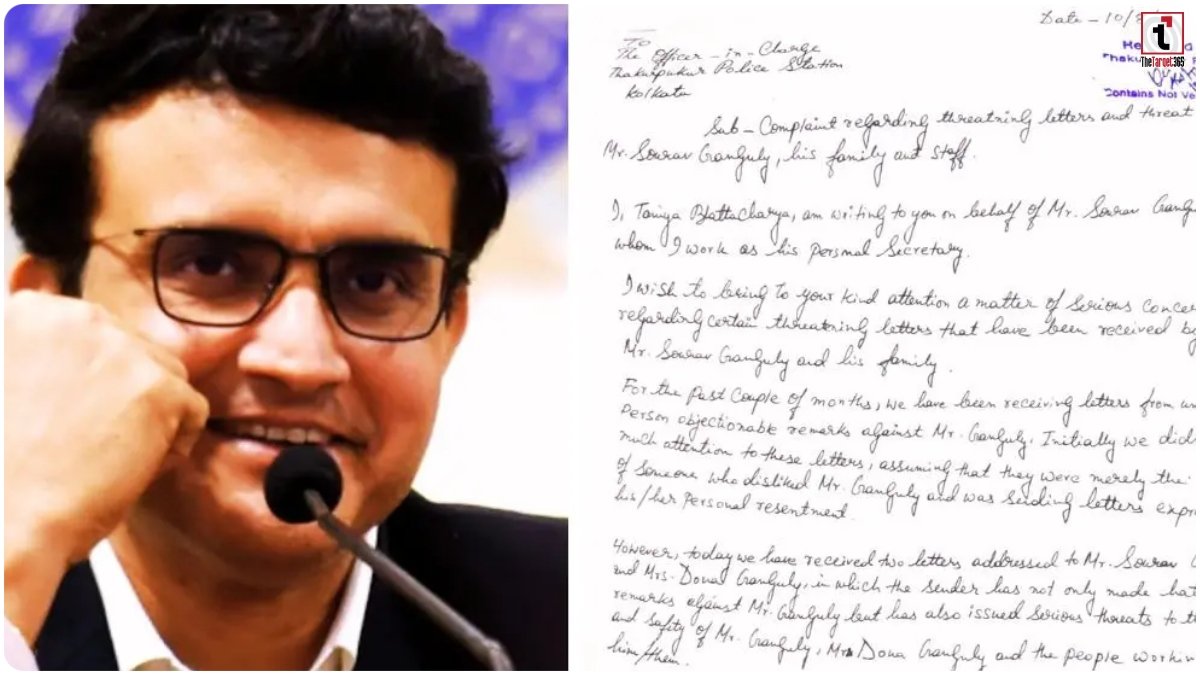 Date - 10/
t
TheTarget365
To
The Officer-in-Charge
Thakurpukur Police Station
Kolkata
Contains Not Ve
Sub - Complaint regarding threatning letters and threat
Mr. Sourav Ganguly, his family and staff.
I, Taniya Bhattacharya, am writing to you on behalf of Mr. Sourav Gangu
whom I work as his Personal Secretary.
I wish to bring to your kind attention a matter of serious concer
regarding certain threatning letters that have been received by
Mr. Sourav Ganguly and his family.
For the past couple of months, we have been receiving letters from un
Person objectionable remarks against Mr. Ganguly. Initially we did
much attention to these letters, assuming that they were merely the
of someone who disliked Mr. Ganguly and was sending letters expr
his/her personal resentment.
However, today we have received two letters addressed to Mr. Sourav G
and Mrs. Dona Ganguly, in which the sender has not only made hat
remarks against Mr. Ganguly but has also issued serious threats to th
and safety of Mr. Ganguly, Mrs Dona Ganguly and the people workin
him/them.